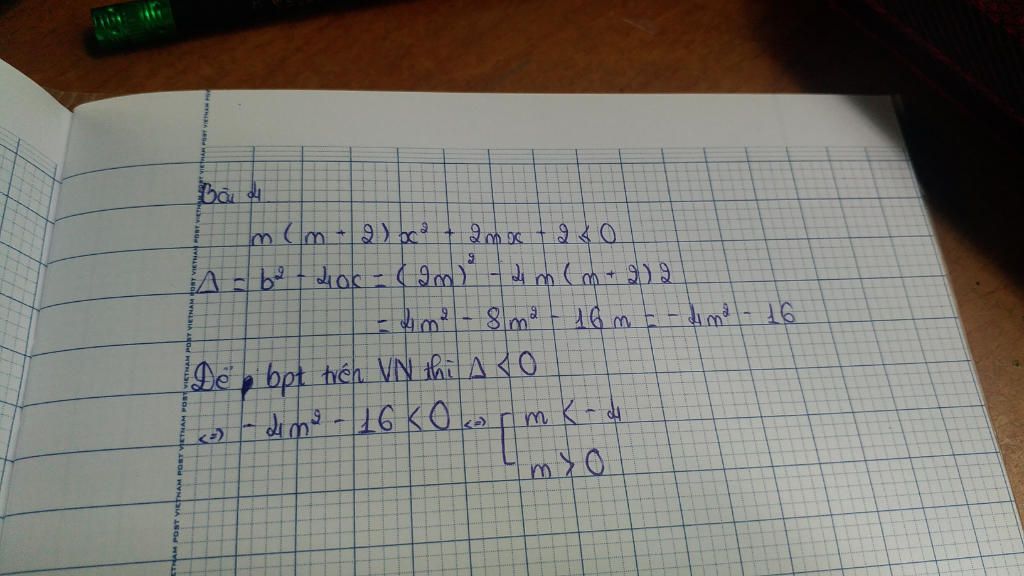 Bài 4
m(m + 2)x² + 2mx + 2 < 0
Δ = b² - 4ac = (2m)² - 4m(m + 2)2
= 4m² - 8m² - 16m = -4m² - 16
Để bpt trên VN thì Δ < 0
<=> -4m² - 16 < 0 <=> [ m < -4
m > 0
VIETNAM POST VIETNAM POST VIETNAM POST VIETNAM POST VIETNAM POST